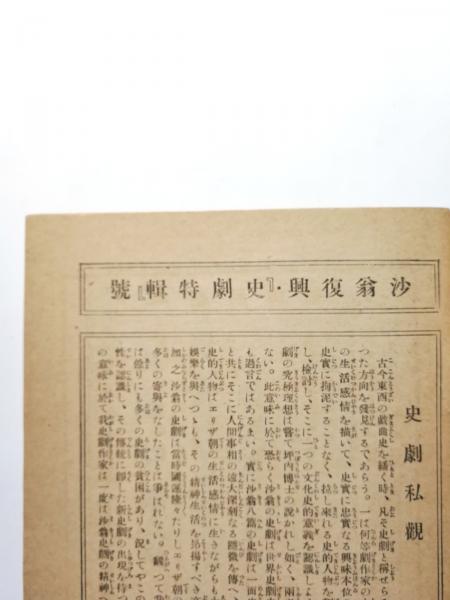 沙翁復興・『史劇特輯』號
史劇私觀
古今東西の戯曲史を繙く時、凡そ史劇と稱せらる
つた方向を發見するであらう。一は何等劇作家の
の生活感情を描いて、史實に忠實なる興味本位
史實に拘泥することなく、拉し來れる史的人物を
し、檢討し、そこに一つの文化史的意義を認識しよ
劇の究極理想は嘗て坪内博士の說かれし如く、兩
ない。此意味に於て恐らく沙翁の史劇は世界史劇
も過言ではあるまい。實に沙翁八篇の史劇は一面史
と共にそこに人間事相の遠大深刻なる機微を傳へ、
史的人物はエリザ朝の生活感情に生きながらも
娛樂を與へつゝも、その精神生活を昂揚すべき
加之、沙翁の史劇は當時國運隆々たりしエリザ朝の
多くの寄與をなしたことは爭はれない。飜つて我
は餘りにも多くの史劇の貧困があり、況してやこの
性を認識し、その傳統に卽した新史劇の出現を待つ
の意味に於て我史劇作家は一度は沙翁史劇の精神へ